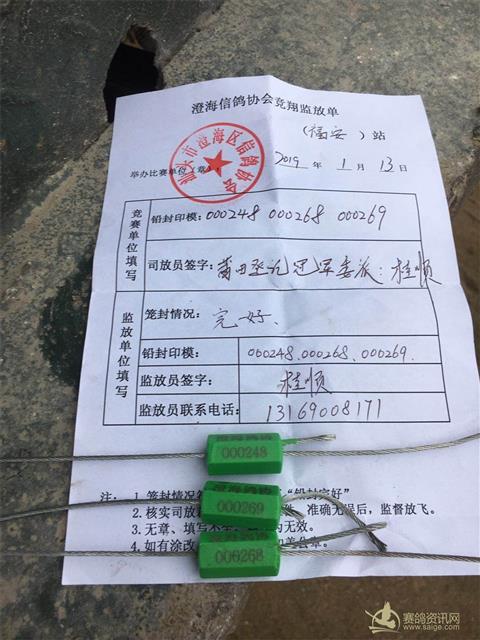 澄海信鸽协会竞翔监放单
（福安）站
举办比赛单位（章）
汕头市澄海区信鸽协会
2019年1月13日
竞赛单位填写
铅封印模：000248 000268 000269
司放员签字：莆田 委派：桂顺
监放单位填写
笼封情况：完好、
铅封印模：000248.000268.000269.
监放员签字：桂顺
监放员联系电话：13169008171
000248
000269
000268
注：1. 笼封情况 “铅封完好”
2. 核实司放 准确无误后，监督放飞。
3.
4. 无章、填写不 为无效。
4. 如有涂改 盖公章。
赛鸽资讯网
www.saige.com